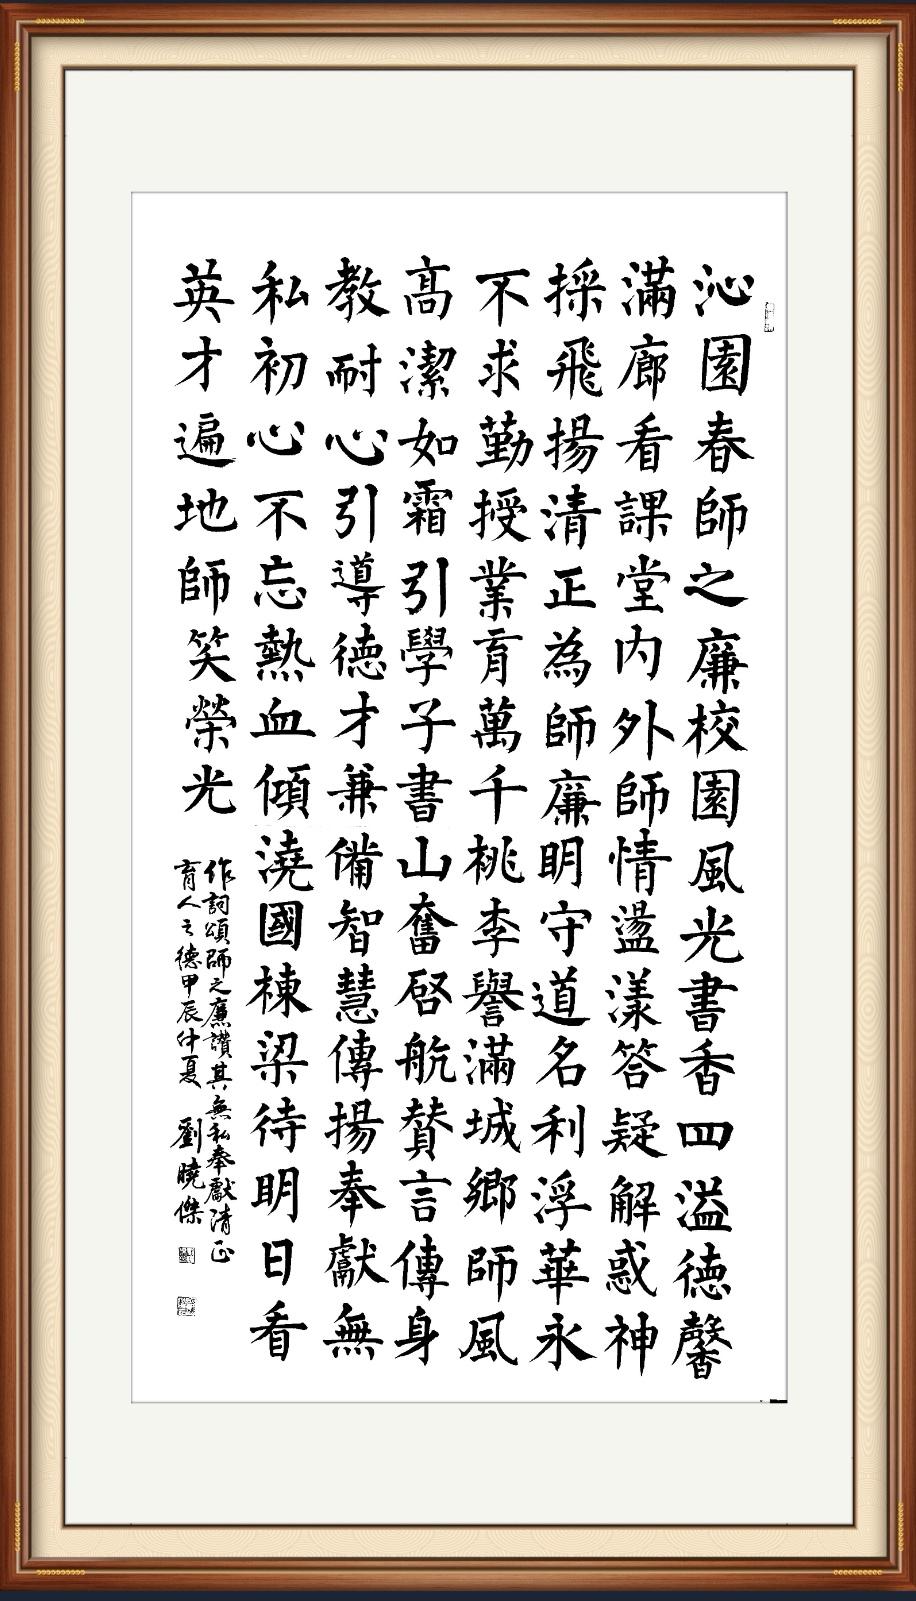 沁園春師之廉校園風光書香四溢德馨
滿廊看課堂内外師情盪漾答疑解惑神
採飛揚清正為師廉明守道名利浮華永
不求勤授業育萬千桃李譽滿城鄉師風
高潔如霜引學子書山奮啓航贊言傳身
教耐心引導德才兼備智慧傳揚奉獻無
私初心不忘熱血傾澆國棟梁待明日看
英才遍地師笑榮光
作詞頌師之廉讚其無私奉獻清正
育人之德甲辰仲夏 劉曉傑